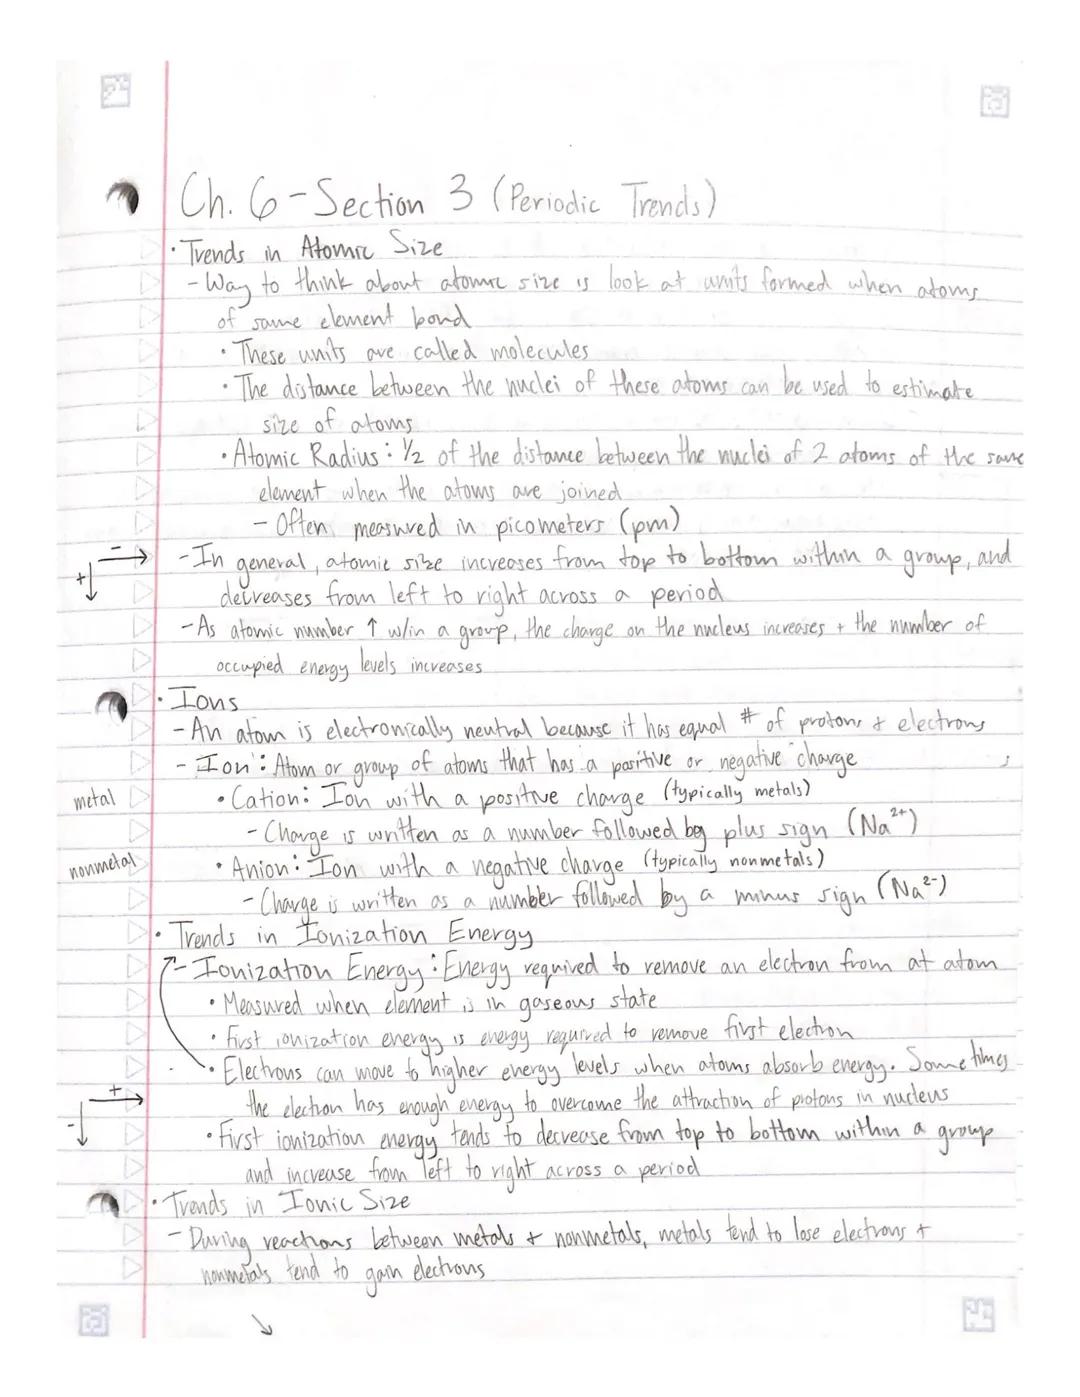 Ch. 6 - Section 3 (Periodic Trends)
• Trends in Atomic Size
- Way to think about atomic size is look at units formed when atoms
of same element bond
• These units are called molecules
• The distance between the nuclei of these atoms can be used to estimate
size of atoms
• Atomic Radius: ½ of the distance between the nuclei of 2 atoms of the same
element when the atoms are joined
- Often measured in picometers (pm)
- →
+ ↓
- In general, atomic size increases from top to bottom within a group, and
decreases from left to right across a period
- As atomic number ↑ w/in a group, the charge on the nucleus increases + the number of
occupied energy levels increases
• Ions
- An atom is electronically neutral because it has equal # of protons & electrons
- Ion: Atom or group of atoms that has a positive or negative charge
metal • Cation: Ion with a positive charge (typically metals)
- Charge is written as a number followed by plus sign (Na²⁺)
nonmetal • Anion: Ion with a negative charge (typically nonmetals)
- Charge is written as a number followed by a minus sign (Na²⁻)
• Trends in Ionization Energy
- Ionization Energy: Energy required to remove an electron from at atom
• Measured when element is in gaseous state
• First ionization energy is energy required to remove first electron
• Electrons can move to higher energy levels when atoms absorb energy. Sometimes
+ →
- ↓
the electron has enough energy to overcome the attraction of protons in nucleus
• First ionization energy tends to decrease from top to bottom within a group
and increase from left to right across a period
• Trends in Ionic Size
- During reactions between metals + nonmetals, metals tend to lose electrons +
nonmetals tend to gain electrons
↘